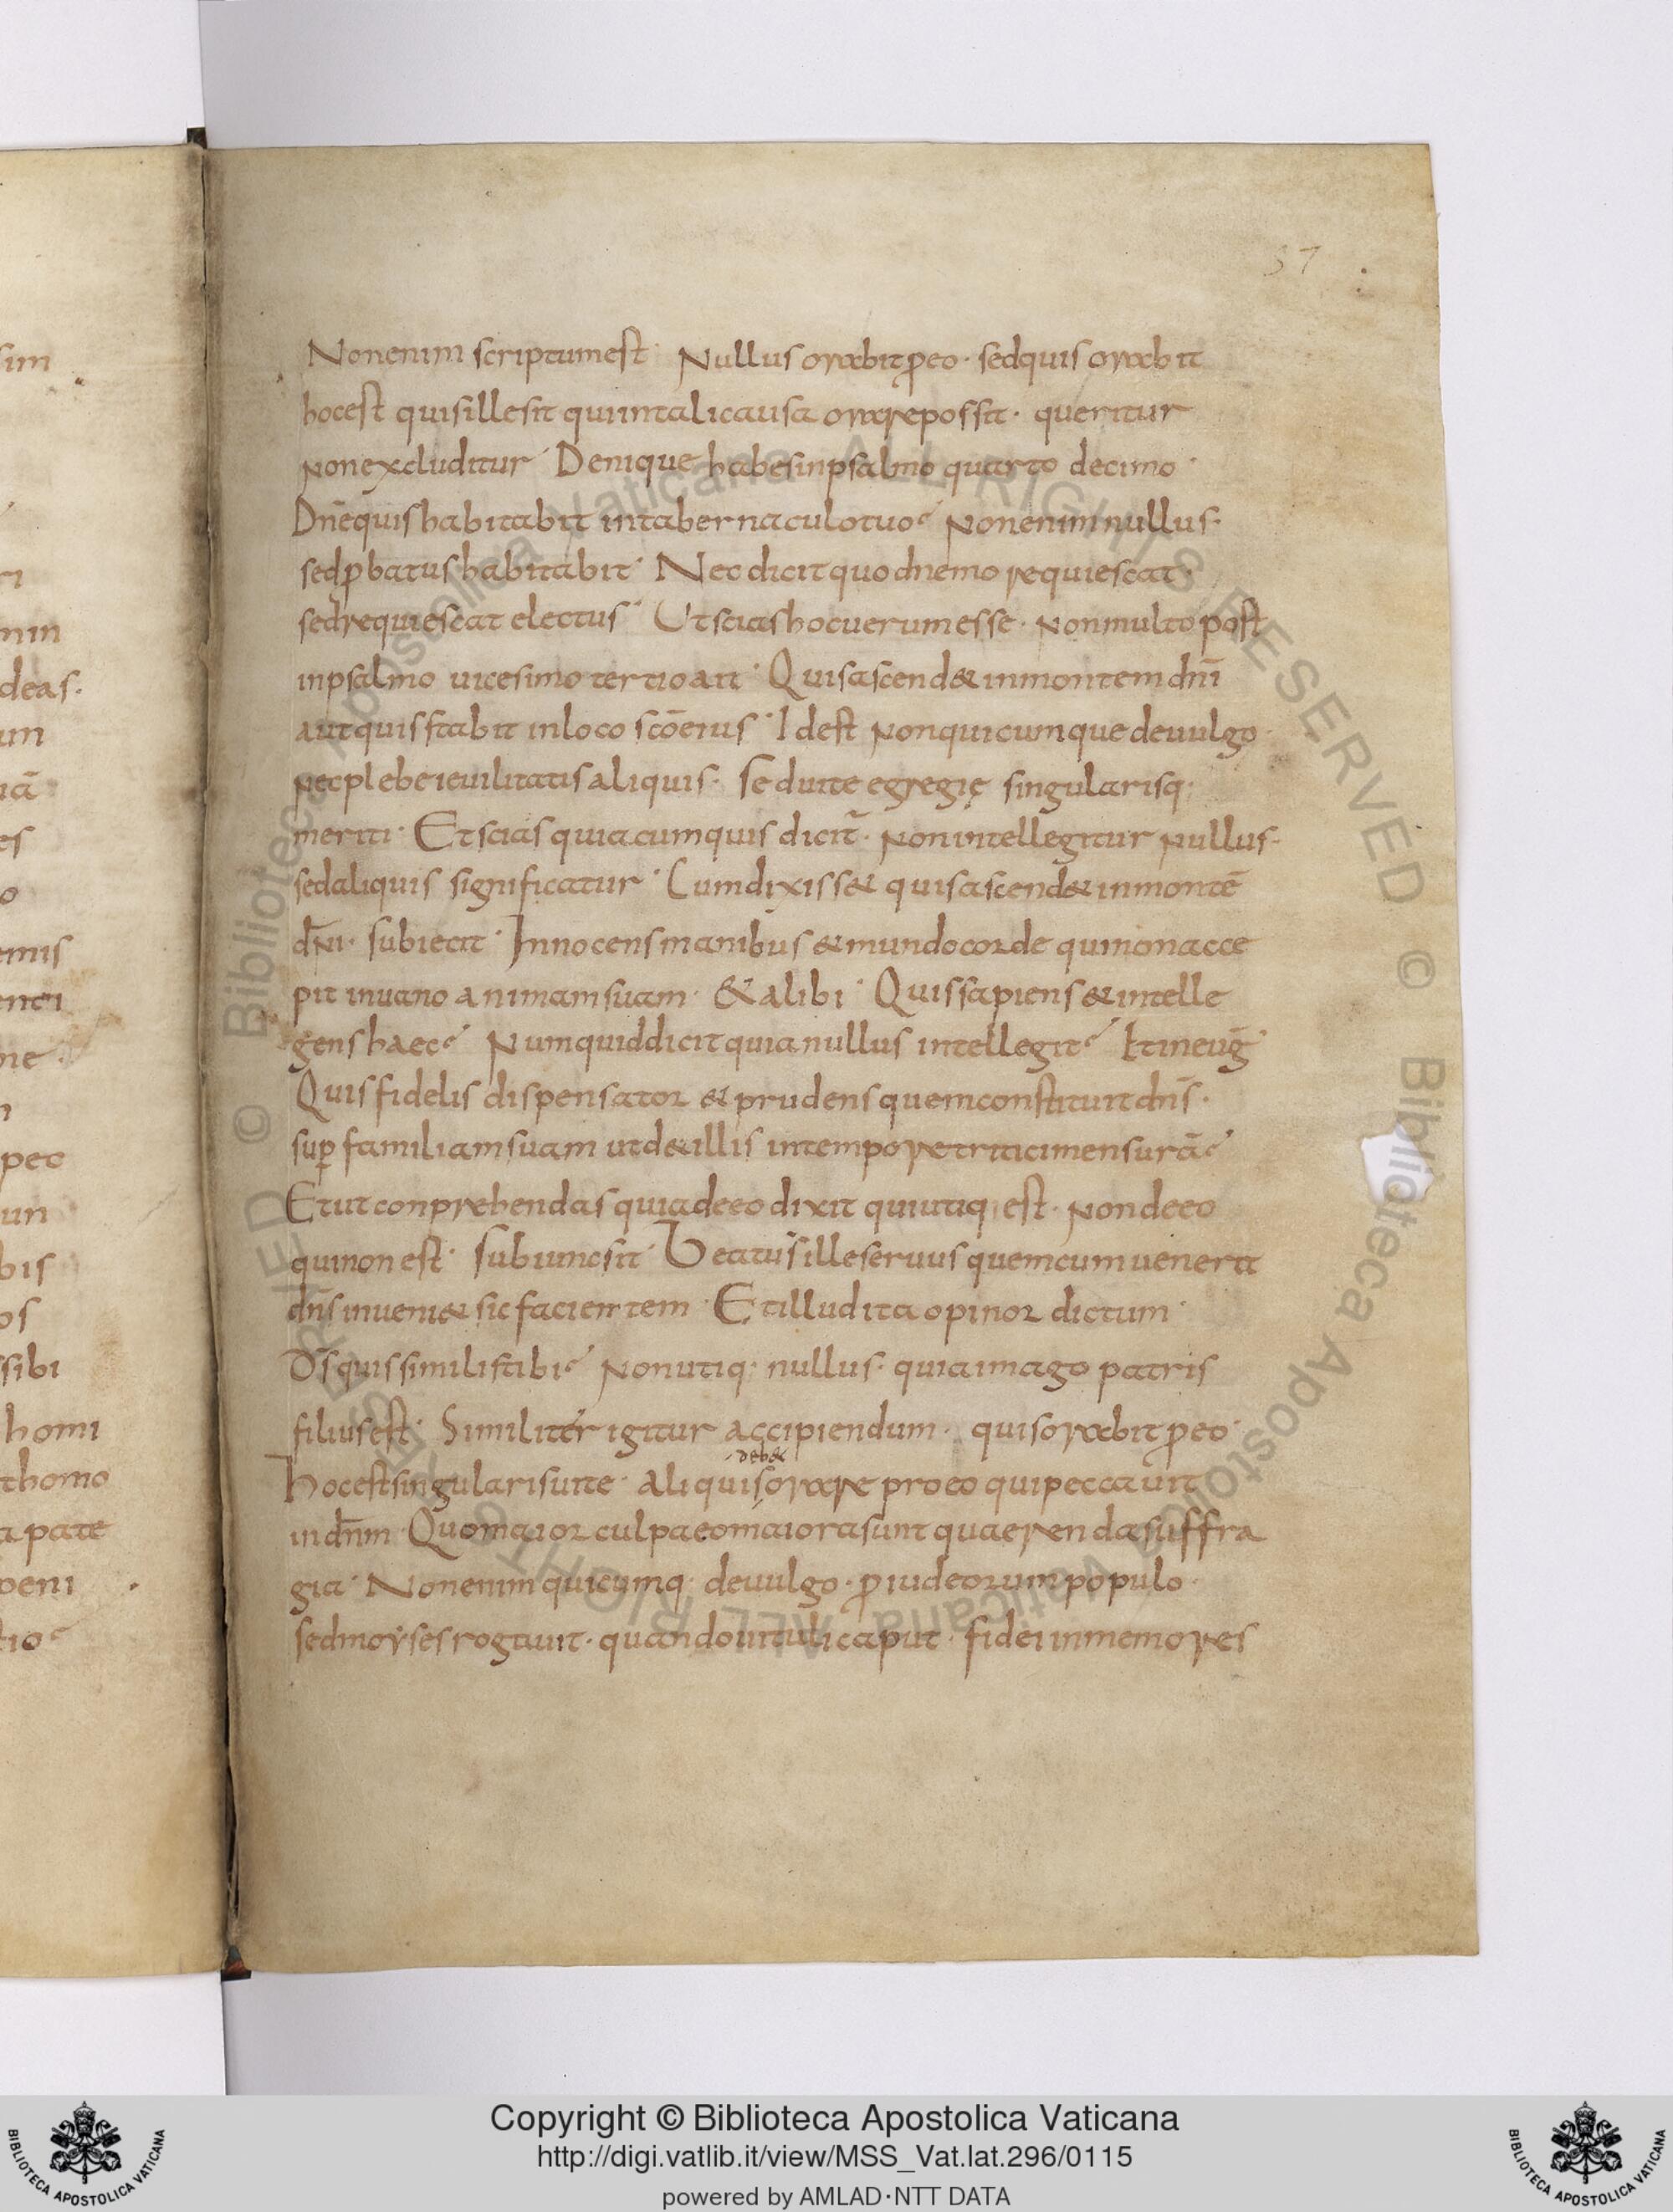 57
Nonenim scriptumest· Nullus orabit ꝓeo· sedquis orabit
hocest quisillesit quiintalicausa orarepossit· queritur
nonexcluditur· Denique habesinpsalmo quarto decimo·
Dn̄equis habitabit intabernaculotuo? Nonenimnullus·
sedꝓbatus habitabit· Nec dicit quodnemo requiescat·
sedrequiescat electus· Ut sciashocuerumesse· nonmulto post
inpsalmo uicesimo tertioait· Quisascend&inmontem dn̄i
aut quis stabit inloco scōeius· Idest nonquicumque deuulgo·
necplebeieuilitatis aliquis· sed uite egregię singularisq;
meriti· Et scias quia cumquis dicit̄· nonintellegitur nullus·
sedaliquis significatur· Cumdixiss& quisascend&inmontē
dn̄i· subiecit· Innocens manibus &mundocorde quinonacce
pit inuano animamsuam· &alibi· Quissapiens &intelle
gens haec? Numquiddicit quianullus intellegit? Etineuḡ·
Quis fidelis dispensator & prudens quemconstituit dn̄s·
suꝑ familiamsuam utd&illis intempore triticimensurā?
Etut conprehendas quiadeeo dixit quiutiq; est· nondeeo
quinon est· subiuncsit· Beatus illeseruus quemcumuenerit
dn̄s inueni& sic facientem· Etilludita opinor dictum·
D̄s quis similis tibi? Nonutiq; nullus· quiaimago patris
filius est· Similiter igitur accipiendum· quisorabit ꝓeo·
deb&
hocestsingularisuite· aliquis orare proeo quipeccauit
in dn̄m· Quomaior culpaeomaiorasunt quaerendasuffra
gia· Nonenim quicumq; deuulgo· ꝓiudeorum populo·
sedmoyses rogauit· quandouituli caput· fidei inmemores
sim
deas·
pec
bis
sibi
homi
thomo
apate
peni
© Biblioteca Apostolica Vaticana ALL RIGHTS RESERVED © Biblioteca Apostolica Vaticana ALL RIGHTS RESERVED
Copyright © Biblioteca Apostolica Vaticana
http://digi.vatlib.it/view/MSS_Vat.lat.296/0115
powered by AMLAD·NTT DATA
BIBLIOTECA APOSTOLICA VATICANA
BIBLIOTECA APOSTOLICA VATICANA